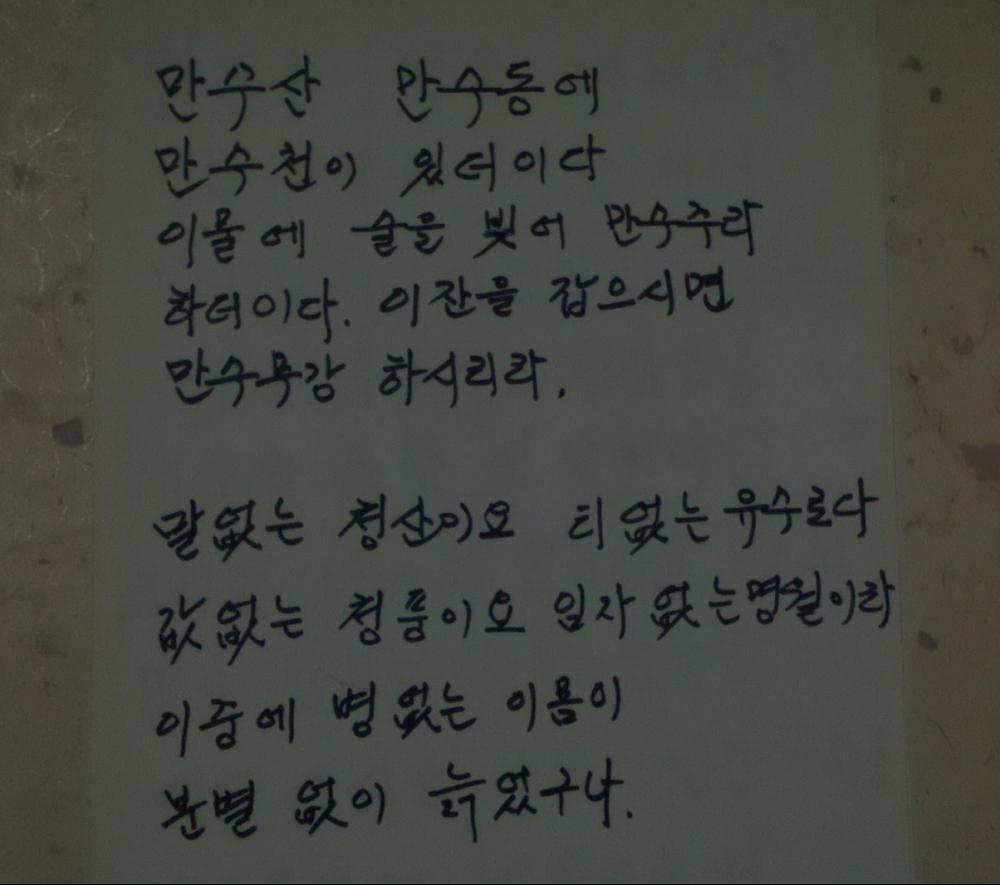 만수산 만수동에
만수천이 있더이다
이물에 술을 빚어 만수주라
하더이다. 이잔을 잡으시면
만수무강 하시리라.
말없는 청산이요 티 없는 유수로다
값없는 청풍이요 임자 없는 명월이라
이중에 병없는 이몸이
분별 없이 늙었구나.